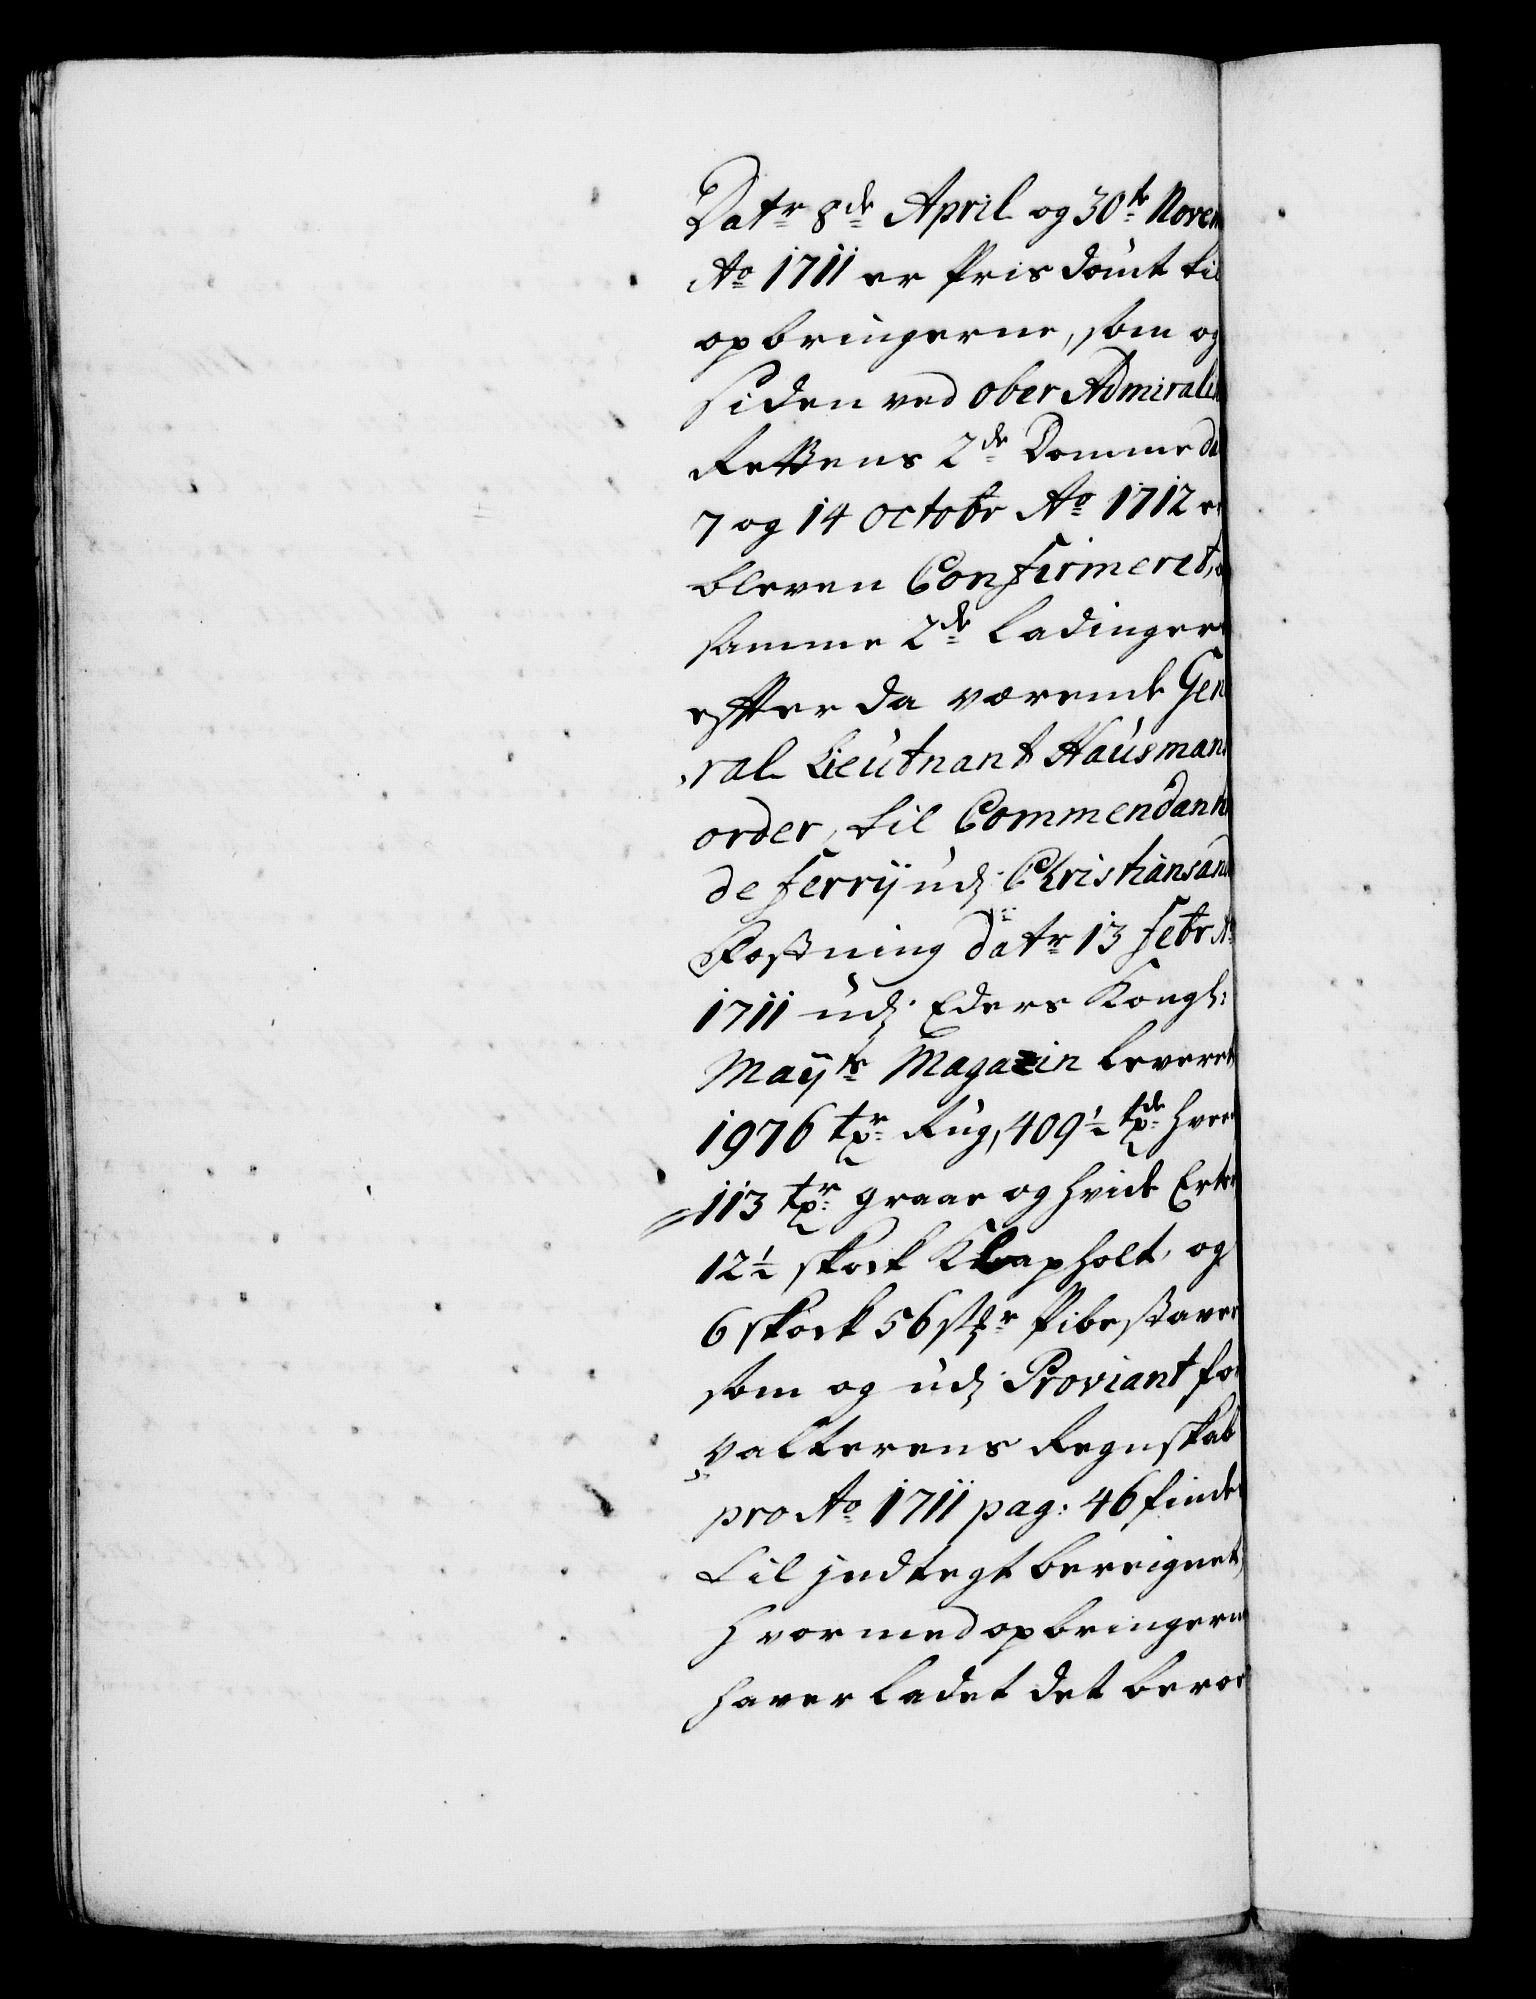 Datr 8de April og 30te Novem
Ao 1711 er Pris dömt til
opbringerne, som og
siden ved Ober Admiralit
Rettens 2de Domme da
7 og 14 octobr Ao 1712 er
bleven Confirmeret,
samme 2de Ladinger
effter da værende Gen
ral Lieutnant Hausman
order, til Commendant
de Ferrÿ udj Christiansand
Festning datr 13 Febr Ao
1711 udj Eders Kongl:
Maÿts Magazin leveret
1976 tr Rug, 409½ tde hvee
113 tr graae og hvide Erter
12½ skock Klapholt, og
6 skock 56 stkr Pibestaver
som og udj Proviant for
valterens Regnskab
pro Ao 1711 pag: 46 findes
til jndtegt bereignet,
hvormed opbringerne
haver ladet det beroe